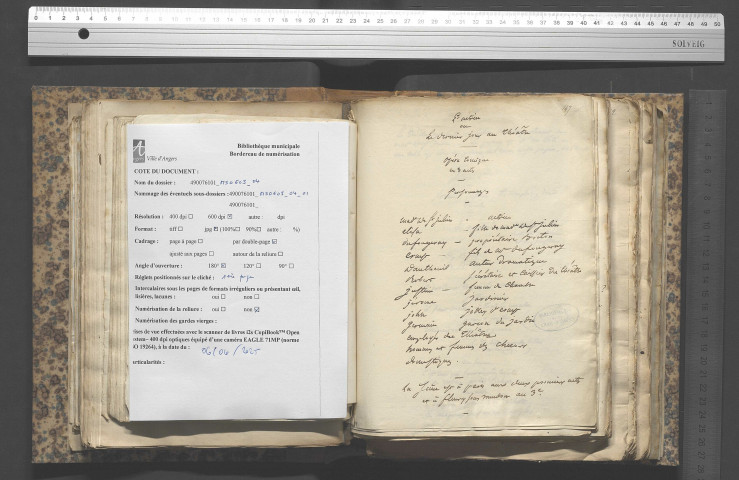 SOLVEIG
Ville d'Angers
Bibliothèque municipale
Bordereau de numérisation
COTE DU DOCUMENT :
Nom du dossier : 490076101_
Nommage des éventuels sous-dossiers :490076101_
490076101_
Résolution : 400 dpi ☐ 600 dpi ☒ autre : dpi
Format : tiff ☐ jpg ☒ (100%☐ 90%☐ autre : %)
Cadrage : page à page ☐ par double-page ☒
ajusté aux pages ☐ autour de la reliure ☐
Angle d'ouverture : 180° ☒ 120° ☐ 90° ☐
Réglets positionnés sur le cliché :
Intercalaires sous les pages de formats irréguliers ou présentant œil,
lisières, lacunes : oui ☐ non ☐
Numérisation de la reliure : oui ☐ non ☒
Numérisation des gardes vierges :
ises de vue effectuées avec le scanner de livres i2s CopiBook™ Open
stem- 400 dpi optiques équipé d'une caméra EAGLE 71MP (norme
O 19264), à la date du :
articularités :
L'actrice
ou
Le dernier jour au théâtre
opéra comique
en 3 actes
Personnages
mad de St Julien - actrice
elisa - fille de mad de St Julien
propriétaire
fils de
auteur dramatique
Robert - secrétaire et caissier du théâtre
femme de chambre
jerome - jardinier
john - jokey
germain - garçon de
employés du théâtre
hommes et femmes des choeurs
domestiques.
La Scène est à paris aux deux premiers actes
et à fleury au 3e